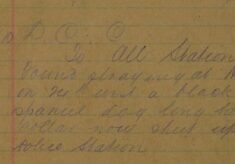 D. O. O
To All Station
Found straying at
in Yes inst a black
spaniel dog long
collar now shut up
Police Station